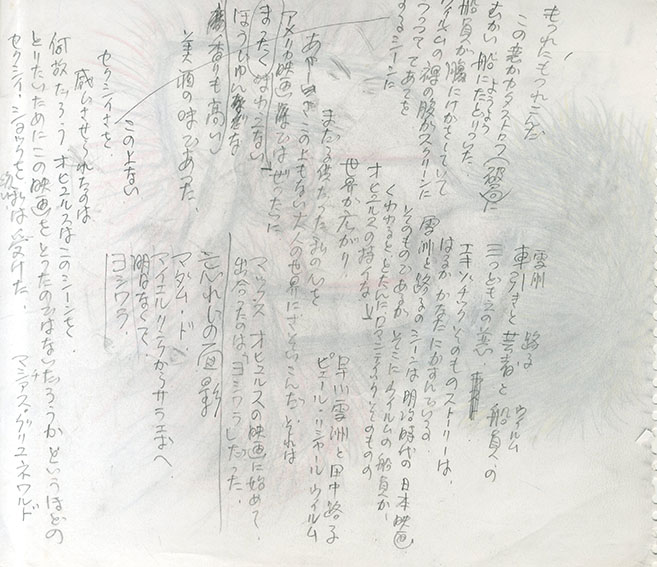 もつれにもつれこんだ
この恋がカタストロフ(破局)に
むかい船にたどりついた。
ようよう
船員が腹にけがをしていて
ウイルムの裸の股がスクリーンに
うつって てあてを
するシーンに
あやしいまでこの上もない大人の世界にさそいこんだ。それは
まだ子供だった私の心を
アメリカ映画
ではぜったいに
まったく味わえない
ほうじゅんな
香りも高い
美酒の味であった。
この上ない
セクシイさを
感じさせられたのは
何故だろう オピュルスはこのシーンを
とりたいためにこの映画をとったのではないだろうか というほどの
セクシイ・ショックを私は受けた。
雪州 路子 ウイルム
車引きと芸者と船員の
三つどもえの恋
エキゾチックそのものストーリーは、
はるかかなたにかすんでいるの
雪州と路子のシーンは明治時代の日本映画
そのものであるが そこにウイルムの船員が
くわわるととたんにロマンティックそのものの
オピュルスの持つな
世界が広がり
早川雪洲と田中路子
ピエール・リシャール ウイルム
マックス オピュルスの映画に始めて
出会ったのは「ヨシワラ」だった。
忘れじの面影
マダム・ド
マイエルリンクからサラエボへ
明日はなくて、
ヨシワラ
マチアス・グリュネワルド